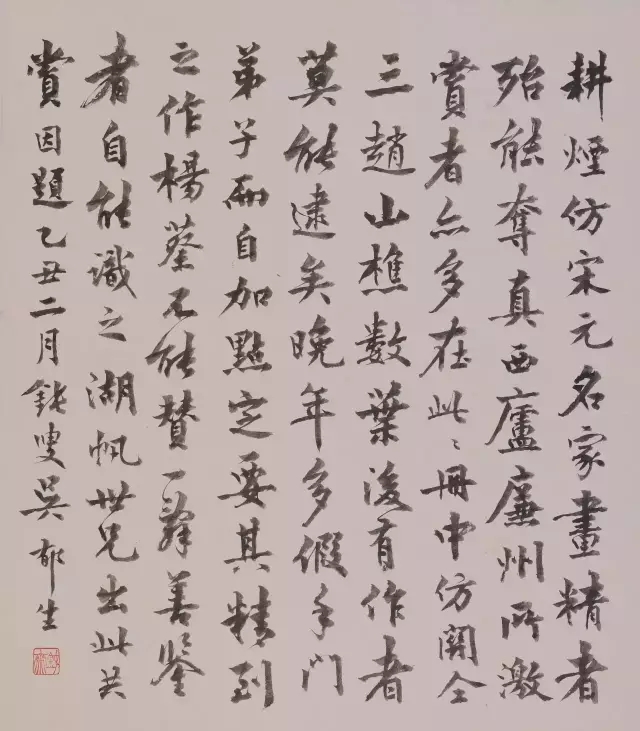 耕煙仿宋元名家畫精者
殆能奪真西廬廉州所激
賞者亦多在此此冊中仿關仝
三趙山樵數葉後有作者
莫能逮矣晚年多假手門
弟子而自加點定要其精到
之作楊蔡不能贊一辭善鑒
者自能識之湖帆世兄出此共
賞因題乙丑二月鈍叟吳郁生